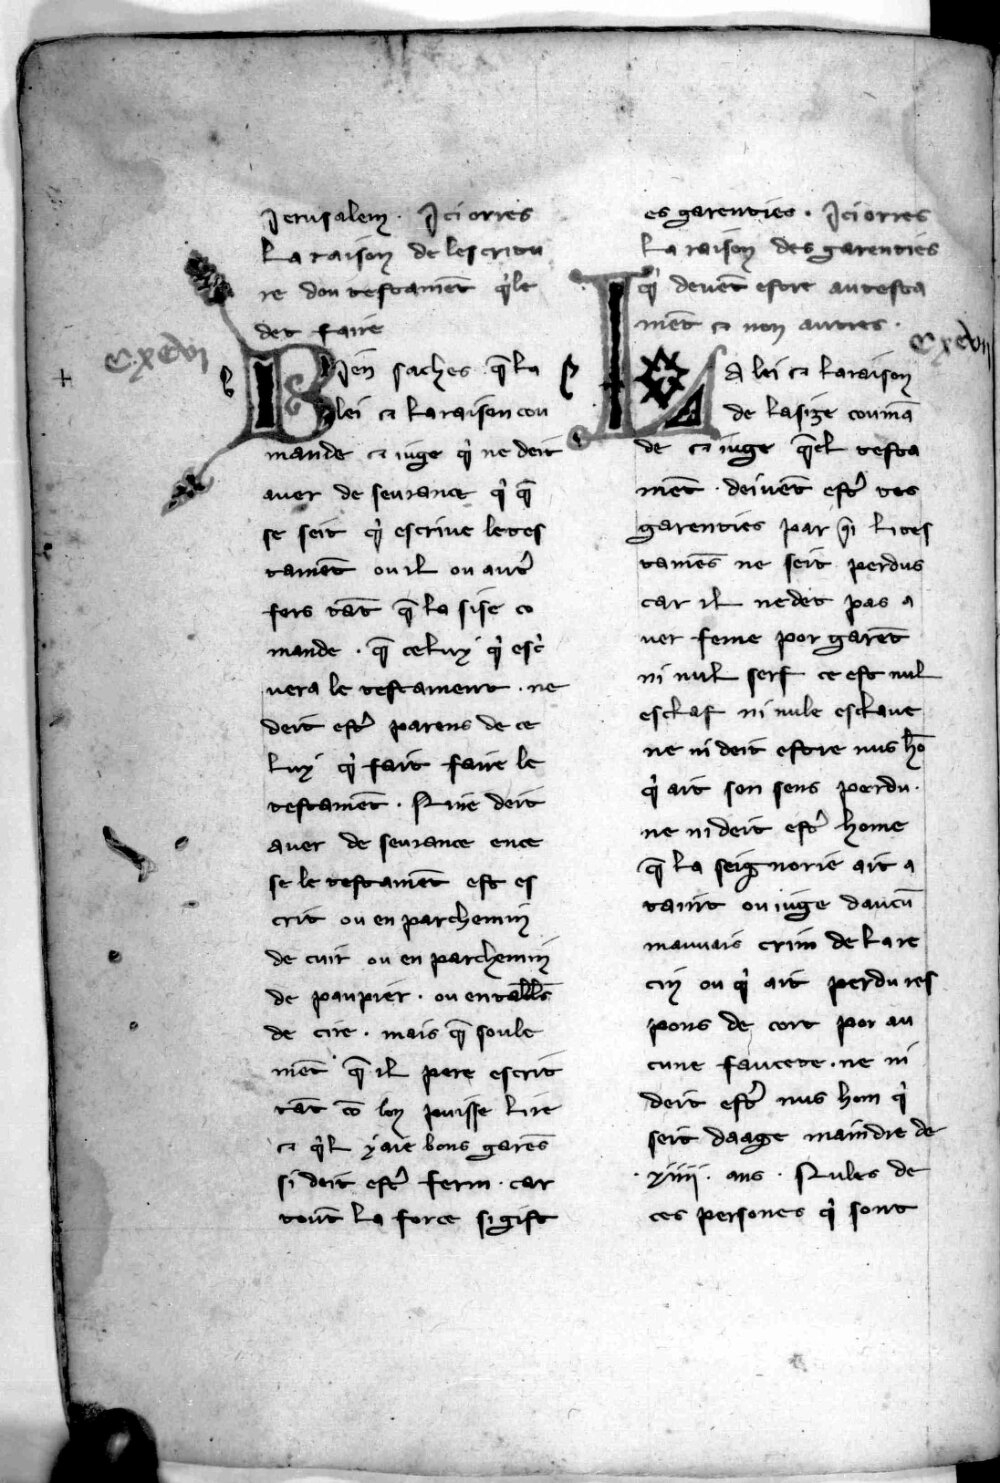 Jerusalem . Jci orres
La raison de lescritu
re dou testamẽt q̇ le
det faire
C.xcvi
BJen saches q̃ la
lei ⁊ la raison cou
mande ⁊ iuge q̇ ne deit
auer de seurance q̇ q̃
se seit q̇ escriue le tes
tamẽt ou il ou autr̾
fors tãt q̃ la sise co
mande . q̃ celuy q̇ esc̓
uera le testament . ne
deit estr̾ parens de ce
luy q̇ fait faire le
testamẽt . N ne deit
auer de seurance en ce
se le testamẽt est es
crit ou en parchemin
de cuir ou en parchemin
de paupier . ou en tabl̃s
de cire . mais q̃ soule
mẽt q̃ il pere escrit
tãt cõ lon puisse lire
⁊ q̇l y aie bons garẽs
si deit estr̾ ferm . car
tout la force si gist
es garenties . Jci orres
La raison des garenties
q̇ deuẽt estre au testa
mẽt ⁊ non autres .
C xcvii
LA lei ⁊ la raison
de la size coumã
de ⁊ iuge q̃l testa
mẽt . deiuẽt estr̾ tes
garenties par q̃i li tes
tamẽs ne seit perdus
car il ne det pas a
uer feme por garẽt
ni nul serf ce est nul
esclaf ni nule esclaue
ne ni deit estre nus hõ
q̇ ait son sens perdu .
ne ni deit estr̾ home
q̃ la seignorie ait a
taint ou iuge daucũ
mauuais crim de lare
cin ou q̇ ait perdu res
pons de cort por au
cune faucete . ne ni
deit estr̾ nus hom q̇
seit daage maindre de
. xiiii . ans . Nules de
ces persones q̇ sont